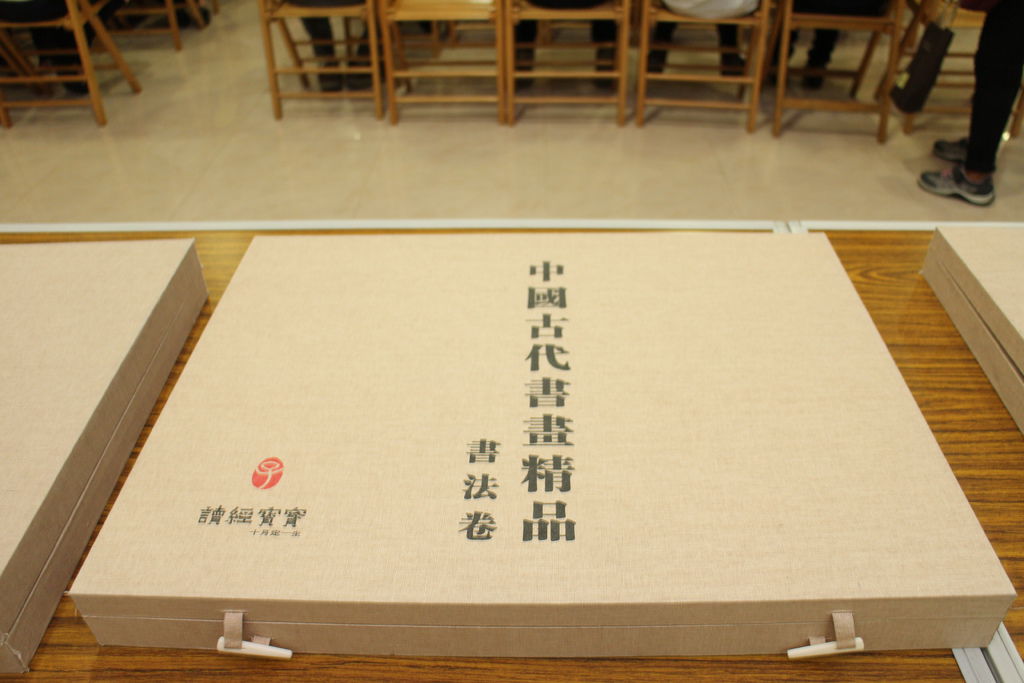 中國古代書畫精品
書法卷
讀經寶寶
十月定一生